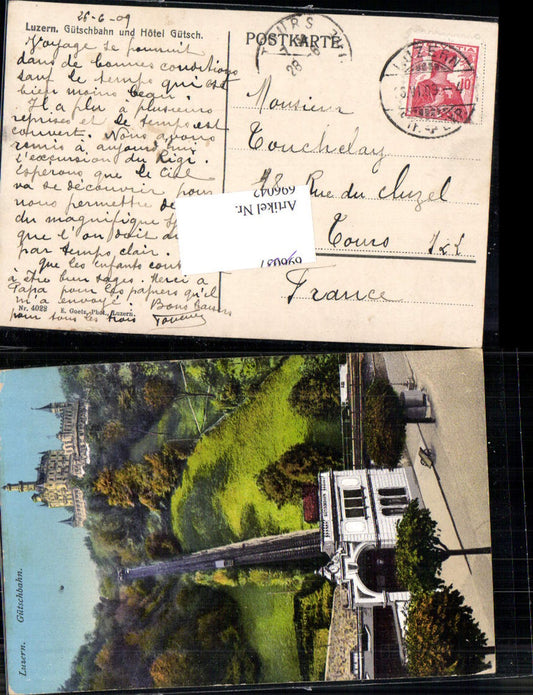 26-6-09
Luzern. Gütschbahn und Hôtel Gütsch.
Voyage se poursuit
dans de bonnes conditions
sauf le temps qui est
bien moins beau.
Il a plu à plusieurs
reprises et le temps est
couvert. Nous avons
remis à aujourd'hui
l'excursion du Rigi.
Espérons que le Ciel
va se découvrir pour
nous permettre de
du magnifique
que l'on doit a
par temps clair.
que les enfants cont
à être bien sages. Merci à
Papa pour les papiers qu'il
m'a envoyé. Bons baisers
pour tous les trois
Nr. 4022 E. Goetz, Phot., Luzern.
POSTKARTE
TOURS
28
LUZERN
HELVETIA
10
Monsieur
Touchelay
Rue du
Tours
France
Artikel Nr.
696042
Luzern. Gütschbahn.